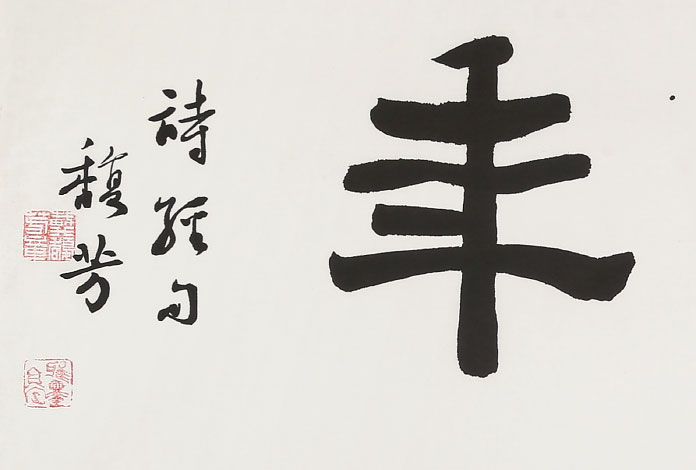 年
詩經句
馥芳